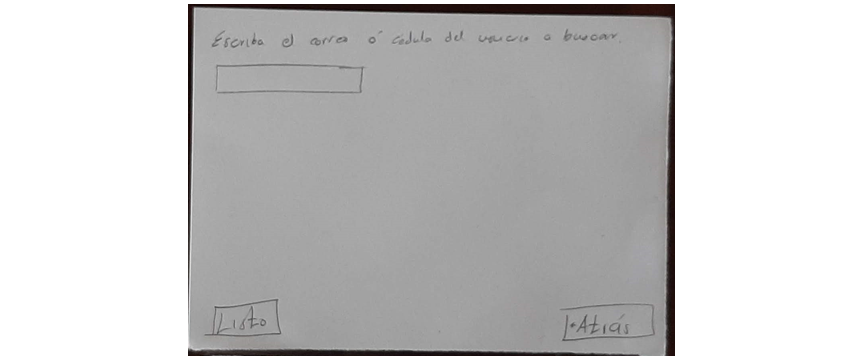 Escriba el correo ó cedula del usuario a buscar.
Listo
Atrás